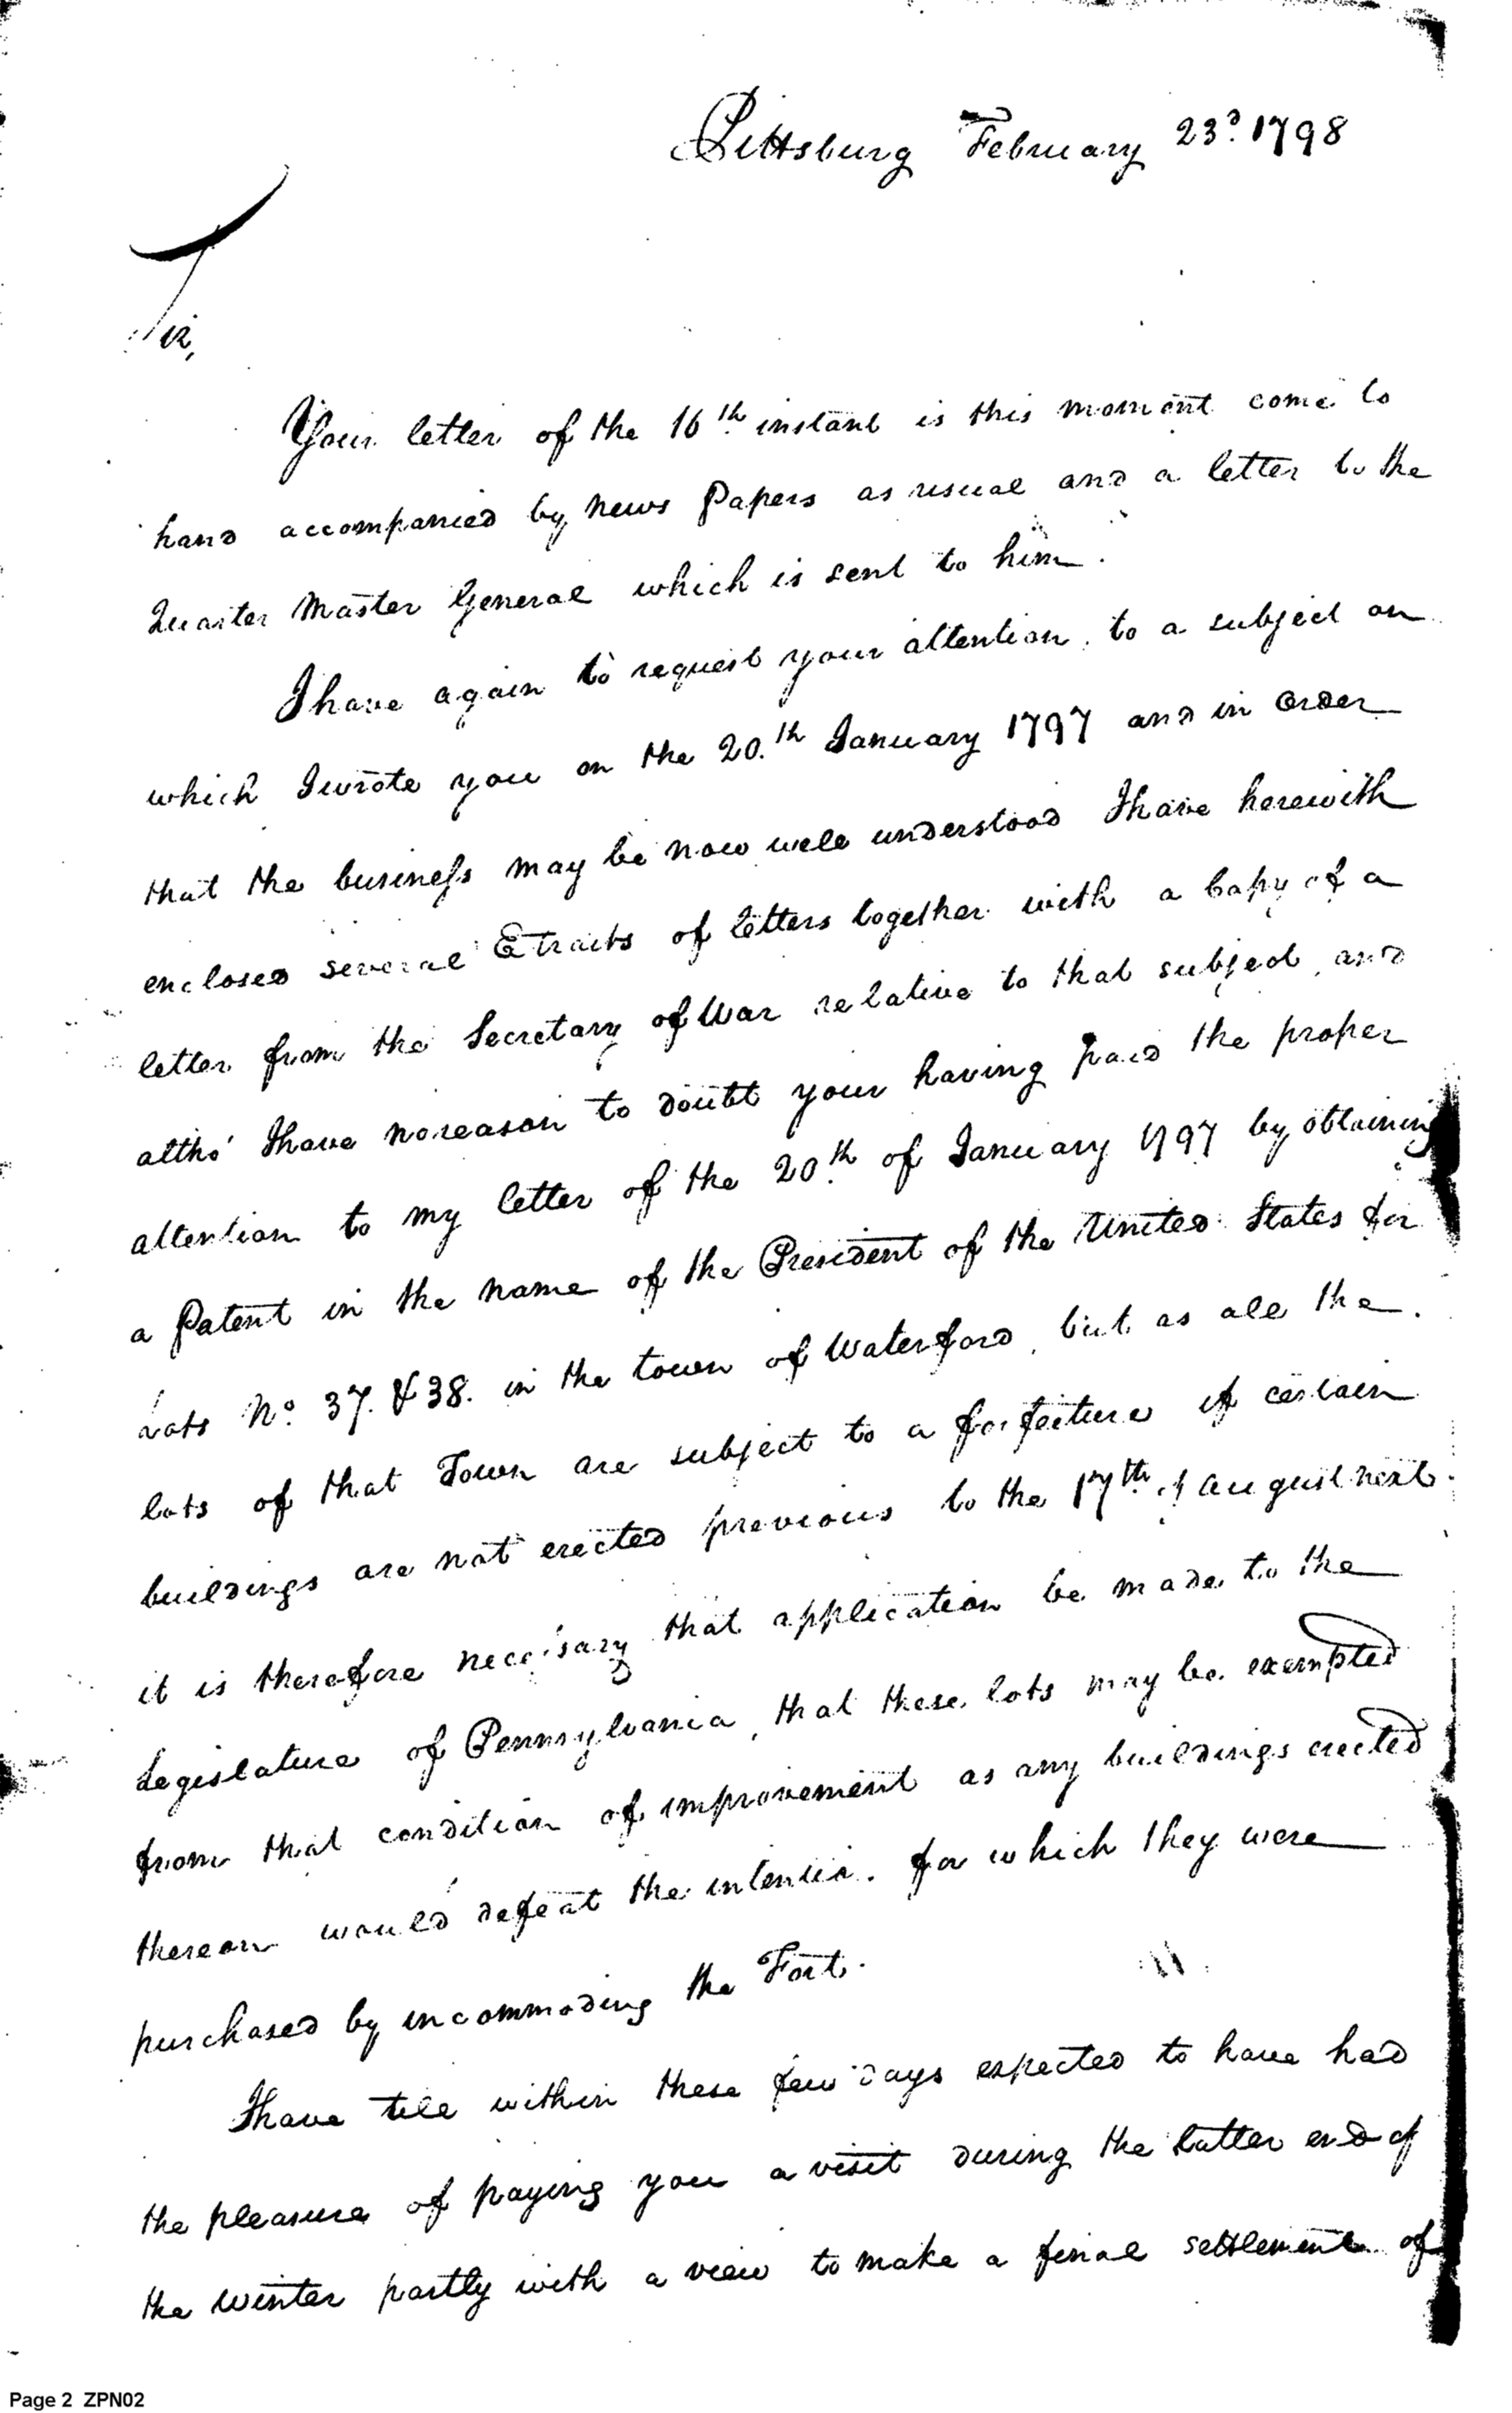 Pittsburg February 23d. 1798
Sir,
Your letter of the 16th. instant is this moment come to
hand accompanied by News Papers as usual and a letter to the
Quarter Master General which is sent to him.
I have again to request your attention, to a subject on
which I wrote you on the 20.th January 1797 and in order
that the business may be now well understood I have herewith
enclosed several Etracts of letters together with a Copy of a
letter from the Secretary of War relative to that subject, and
altho' I have no reason to doubt your having paid the proper
attention to my letter of the 20th. of January 1797 by obtaining
a Patent in the name of the President of the United States for
Lots No. 37. & 38. in the town of Waterford, but as all the
lots of that Town are subject to a forfeiture if certain
buildings are not erected previous to the 17th. of August next.
it is therefore necessary that application be made to the
Legislature of Pennsylvania, that these lots may be exempted
from that condition of improvement as any buildings erected
thereon would defeat the intention for which they were
purchased by incommoding the Fort.
I have till within these few days expected to have had
the pleasure of paying you a visit during the latter end of
the Winter partly with a view to make a final settlement of
Page 2 ZPN02